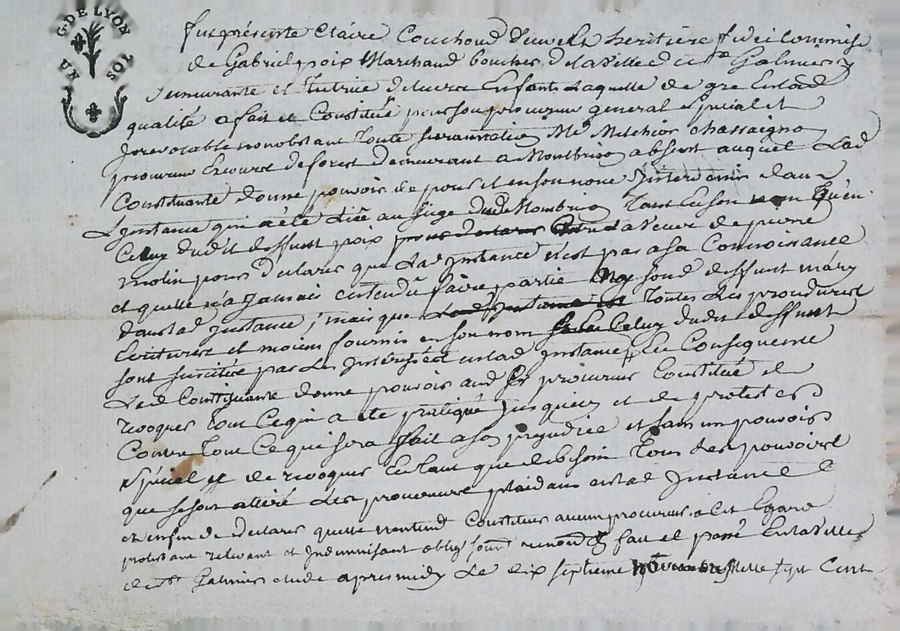 G. DE LYON
UN SOL
fut présente Claire Couchoud veufve et heritiere fideicommise
de Gabriel poix Marchand boucher de la Ville de st Galmier y
demeurante et tutrice de leurs Enfants Laquelle de gre Enlad
qualité a fait et Constitué pour son procureur general special et
Irrevocable nonobstant toute surannation Me Melchior Chassaigno
procureur Ez cours de forest demeurant a Montbrison absent auquel Lad
Constituante donne pouvoir de pour et en son nom Intervenir dans
L'instance qui a été au siege dud Montbrison tant en son nom qu'en
Celuy dudit deffunt poix a la veuve de pierre
molin pour declarer que Lad Instance n'est pas a sa Connoissance
et quelle n'a Jamais entendu faire partie Ny sond deffunt mary
dans lad Instance, mais que toutes Les procedures
Ecritures et moiens fournis en son nom et Celuy dudit deffunt
sont par Les en lad Instance, En Consequence
Lad Constituante donne pouvoir aud Sr procureur Constitué de
revoquer tout Ce qui a été pratiqué Jusquicy et de protester
Contre tout Ce qui sera fait a son prejudice et sans un pouvoir
special de revoquer En tant que de besoin tous Les pouvoirs
que Les procureurs plaidans en lad Instance
et enfin de Declarer quelle n'entend Constituer aucun procureur a cet Egard
protestant relevant et Indemnisant oblig soum renon fait et passé En la Ville
de st Galmier etude apres midy Le dix septieme Novembre Mille sept Cent